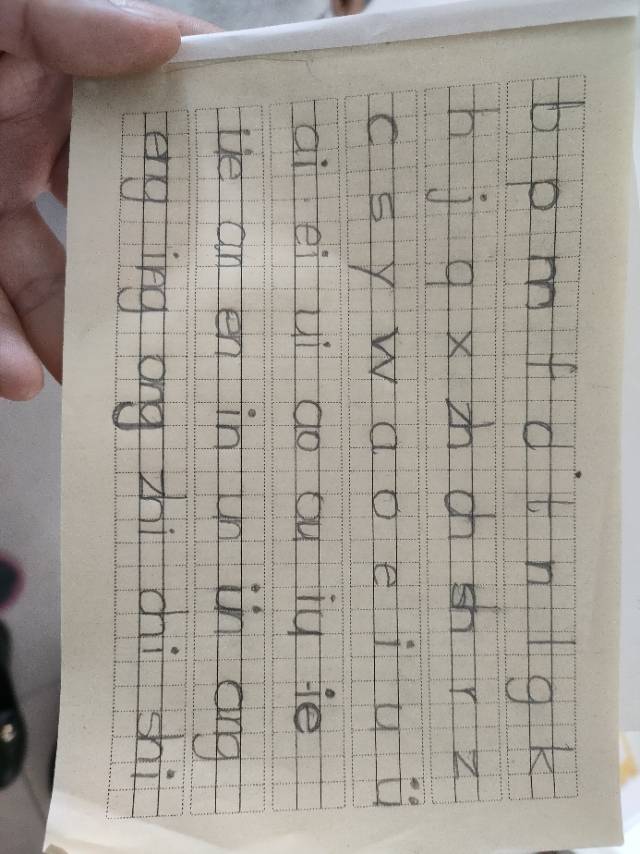 b p m f d t n l g k
h j q x zh ch sh r z
c s y w a o e i u ü
ai ei ui ao ou iu ie
üe an en in un ün ang
eng ing ong zhi chi shi